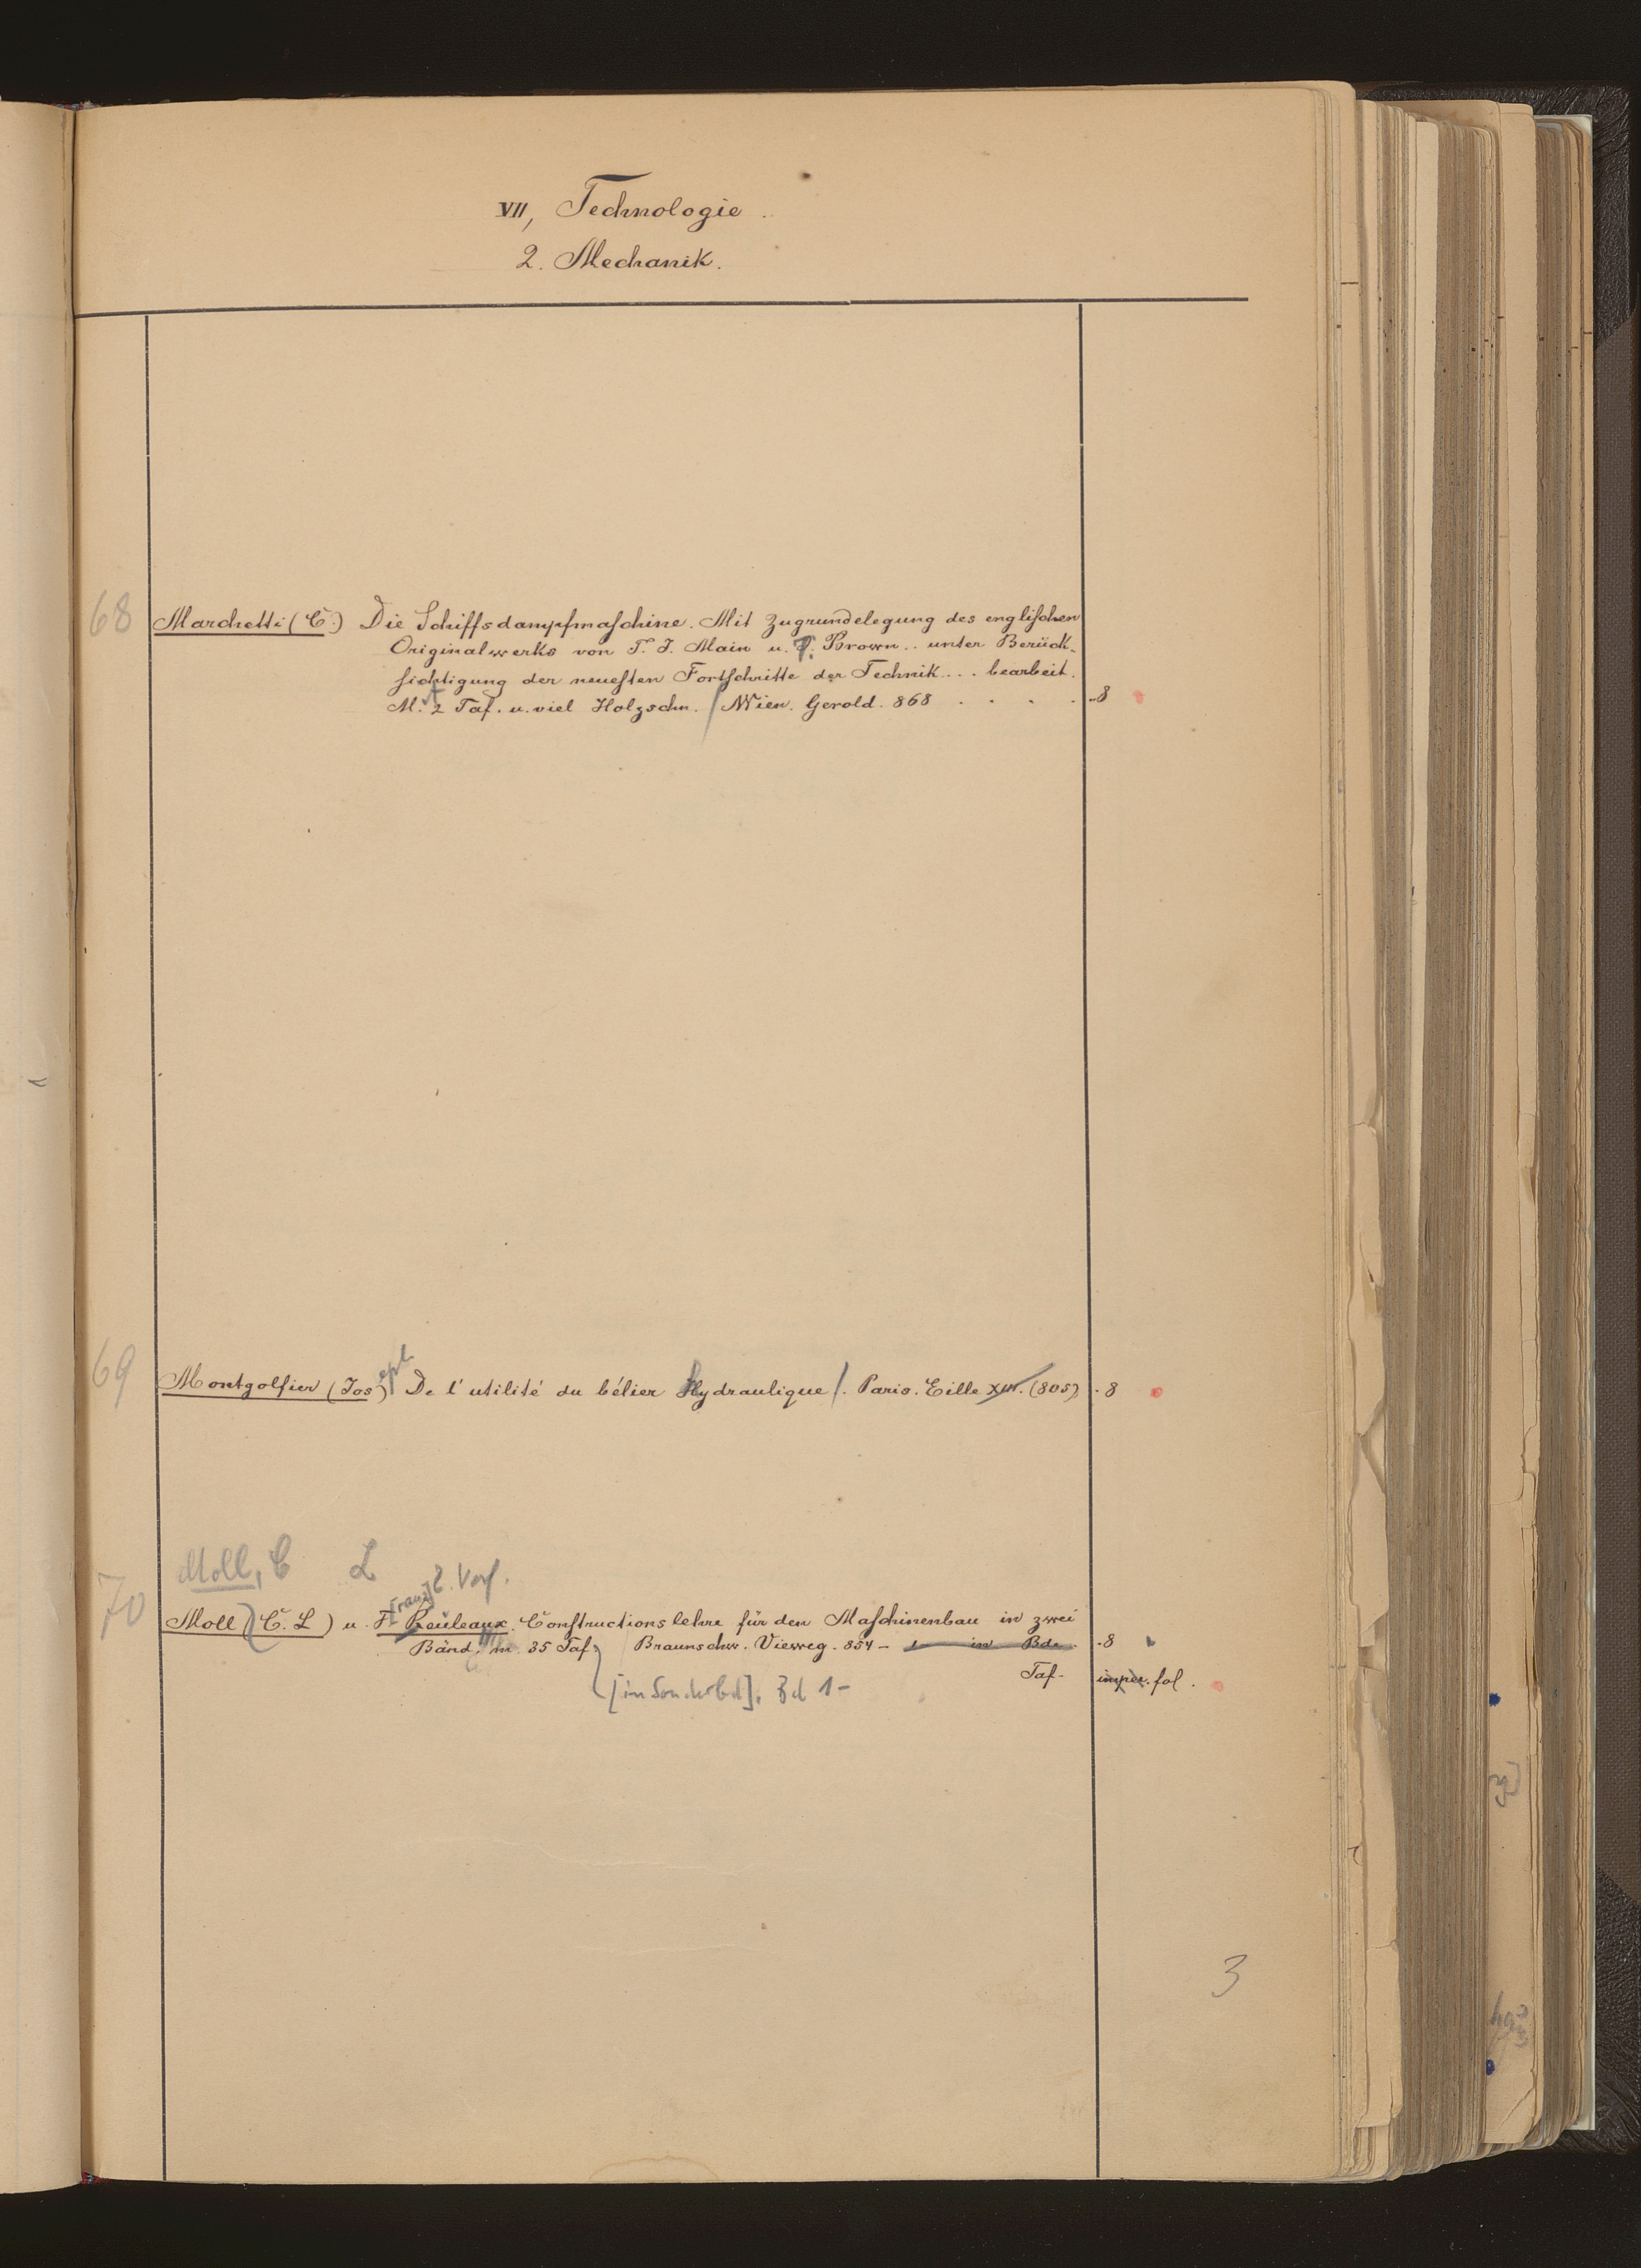 VII, Technologie.
2. Mechanik.
68 Marchetti (C.) Die Schiffsdampfmaschine. Mit Zugrundelegung des englischen
Originalwerks von T. J. Main u. T. Brown.. unter Berück-
sichtigung der neuesten Fortschritte der Technik... bearbeit.
M. 2 Taf. u. viel Holzschn. / Wien. Gerold. 868 . . . . 8
69 Montgolfier (Joseph) De l'utilité du bélier hydraulique /. Paris. Gille XIII. (805) . 8
Moll, C L
[ranz] 2. Verf.
70 Moll (C. L) u. F. Reuleaux. Constructionslehre für den Maschinenbau in zwei
Bänd. m. 35 Taf. / Braunschw. Vieweg. 854 – 1 in Bde. . 8
Taf. imper. fol.
[in Sonderbd]. Bd 1–
3